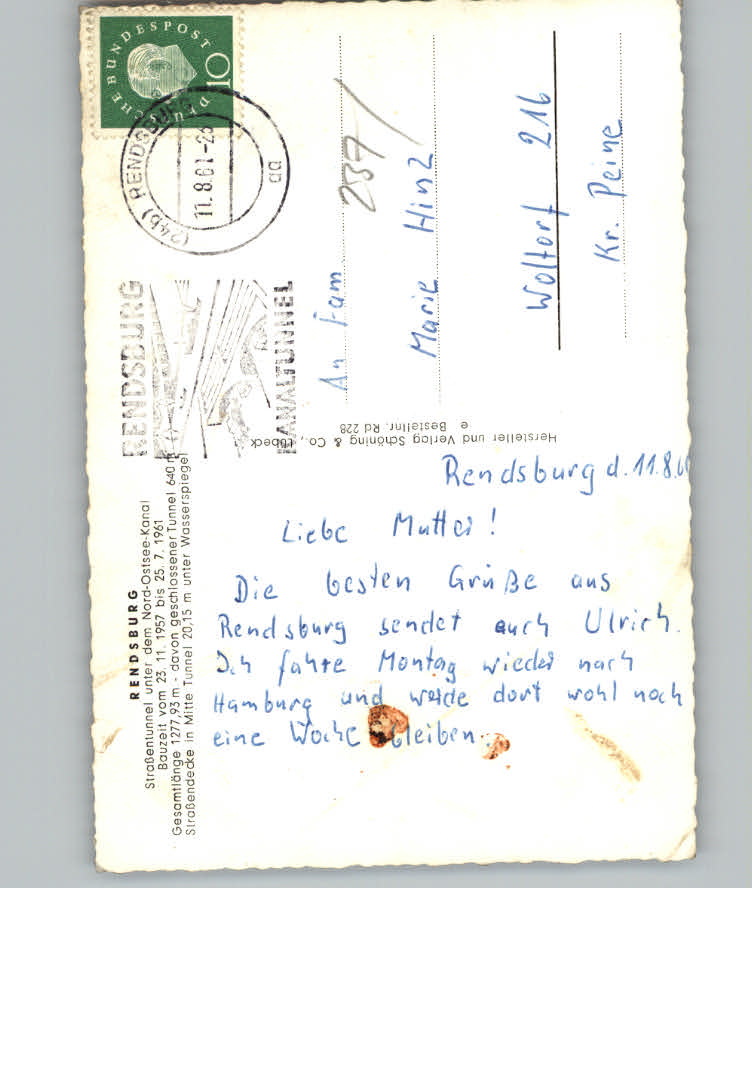 RENDSBURG
Straßentunnel unter dem Nord-Ostsee-Kanal
Bauzeit vom 23. 11. 1957 bis 25. 7. 1961
Gesamtlänge 1277,93 m - davon geschlossener Tunnel 640 m
Straßendecke in Mitte Tunnel 20,15 m unter Wasserspiegel
RENDSBURG
KANALTUNNEL
(24b) RENDSBURG
11. 8. 61-
aa
DEUTSCHE BUNDESPOST
10
Hersteller und Verlag Schöning & Co., Lübeck
e Bestellnr. Rd 228
Rendsburg d. 11.8.
Liebe Mutter!
Die besten Grüße aus
Rendsburg sendet auch Ulrich.
Ich fahre Montag wieder nach
Hamburg und werde dort wohl noch
eine Woche bleiben.
An Fam
237
Marie Hinz
Woltorf 216
Kr. Peine